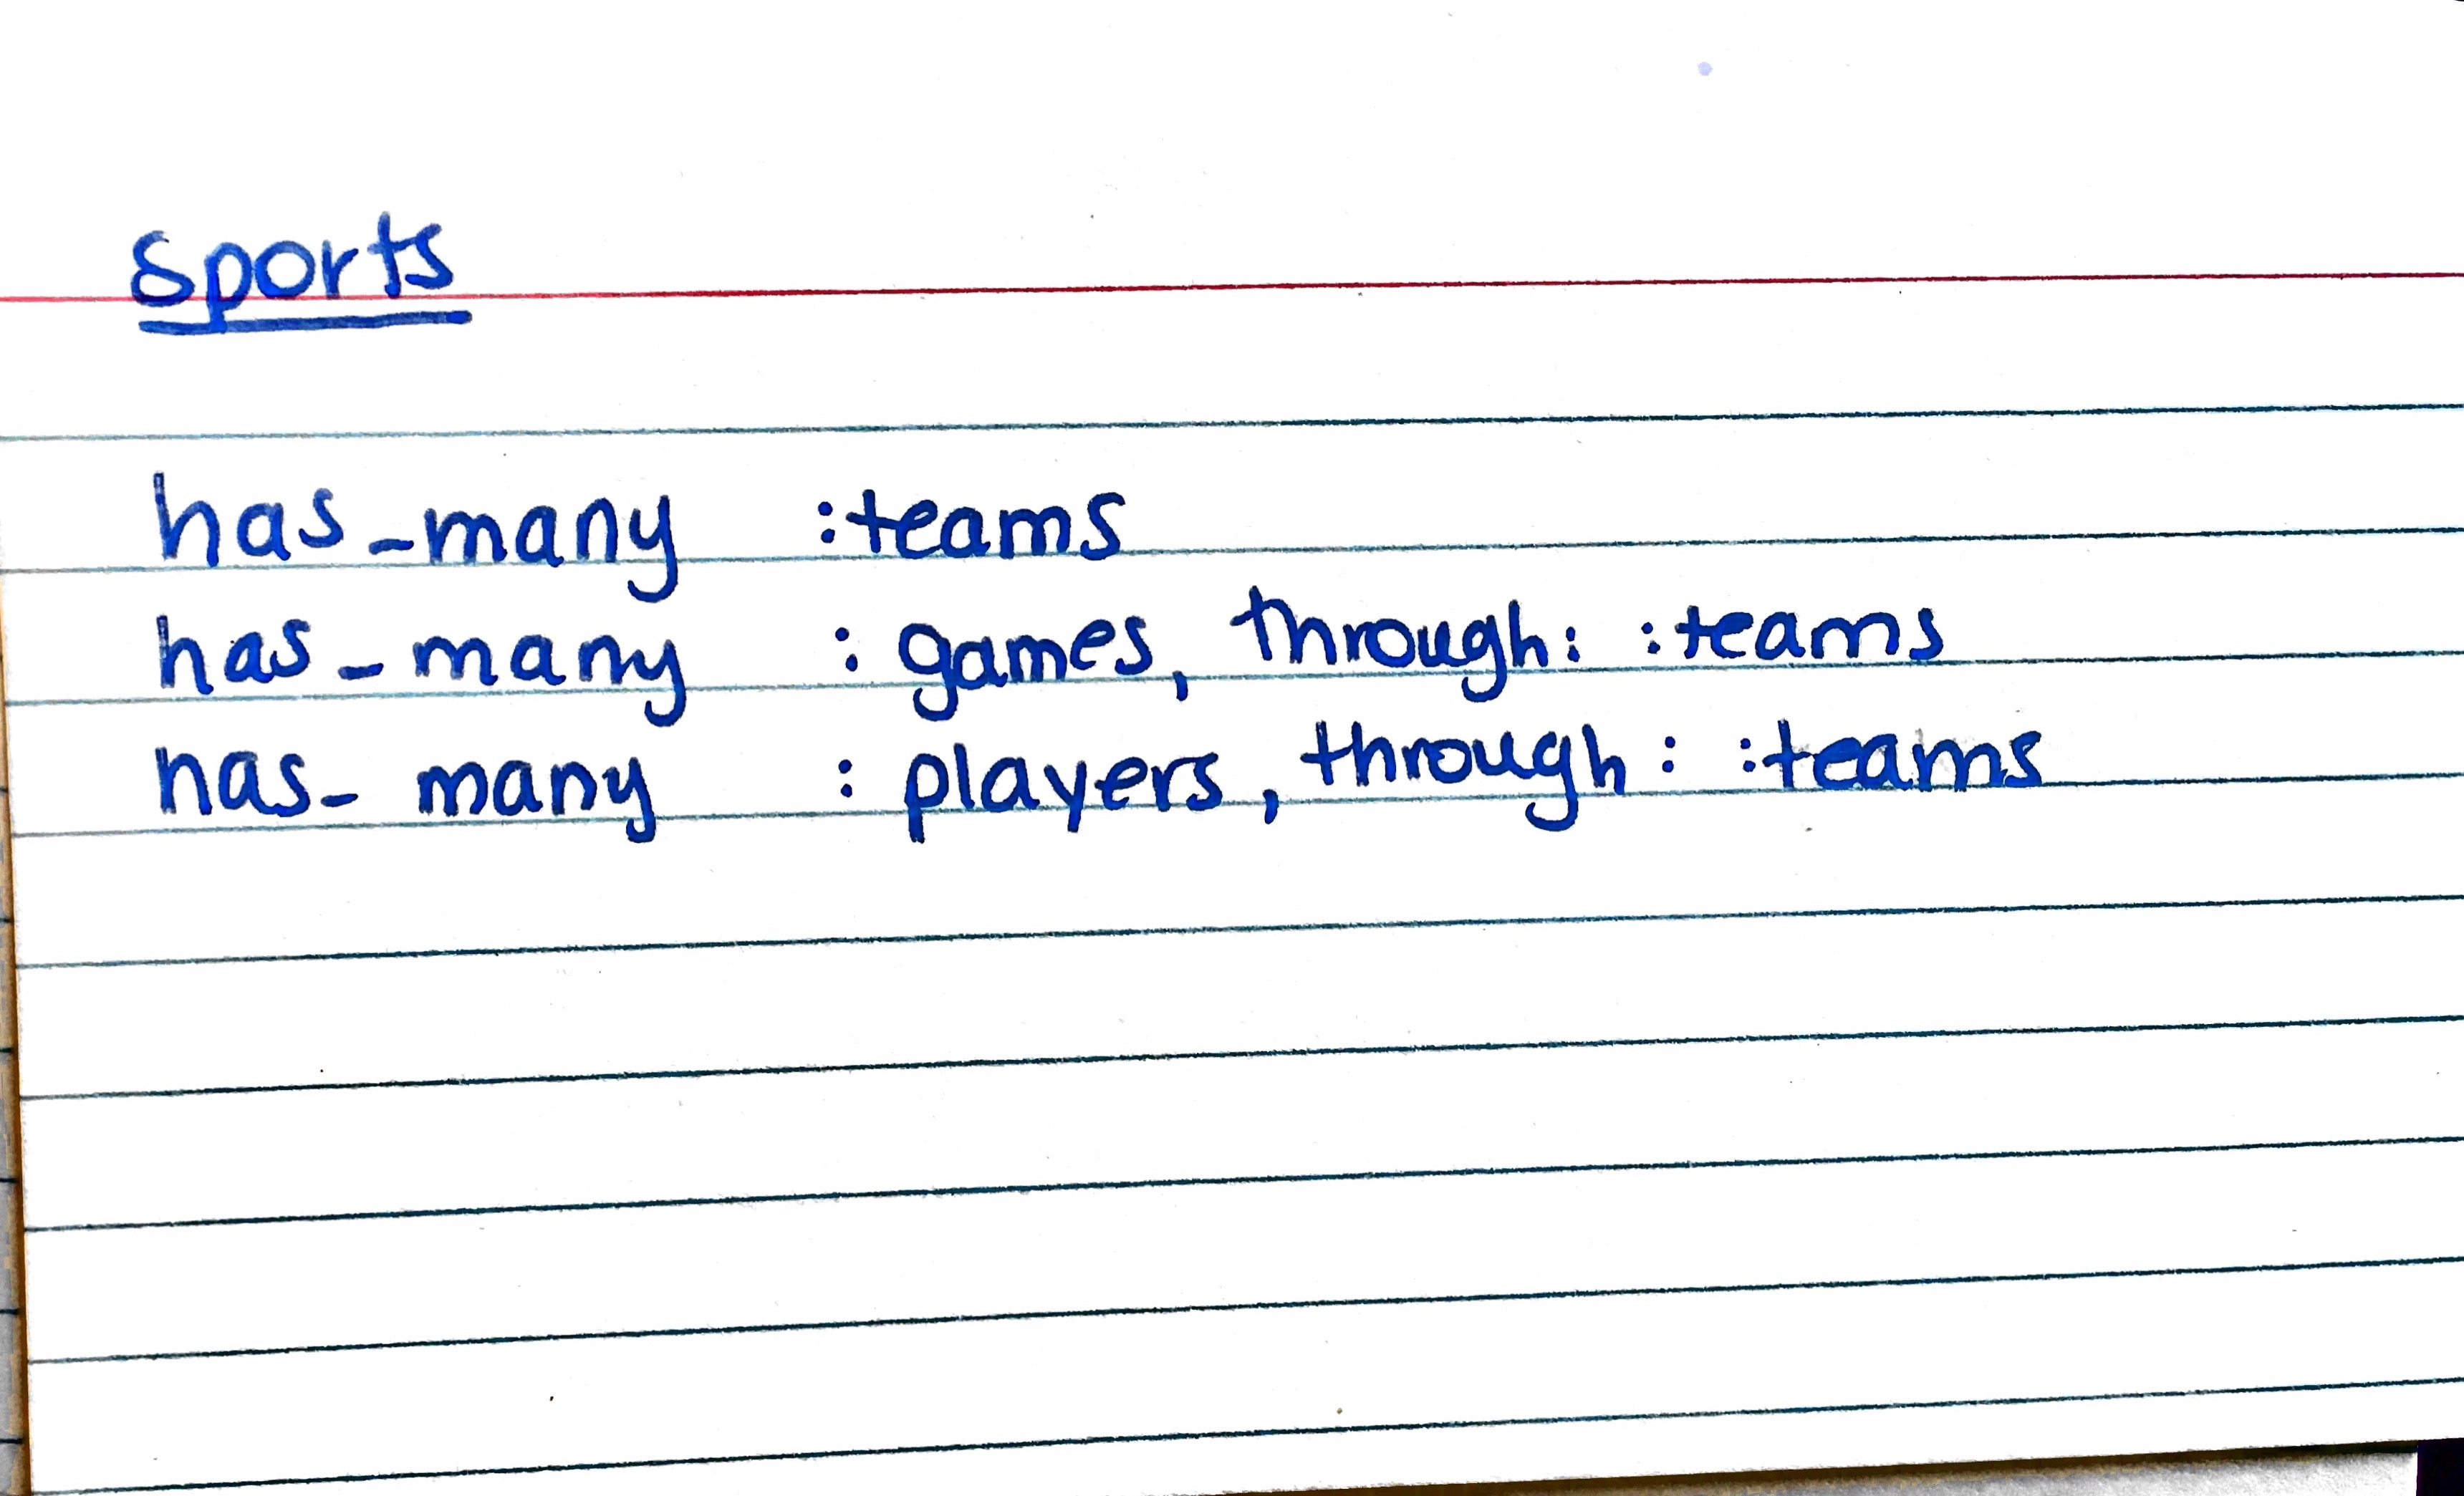 sports
has_many :teams
has_many : games, through: :teams
has_many : players, through: :teams